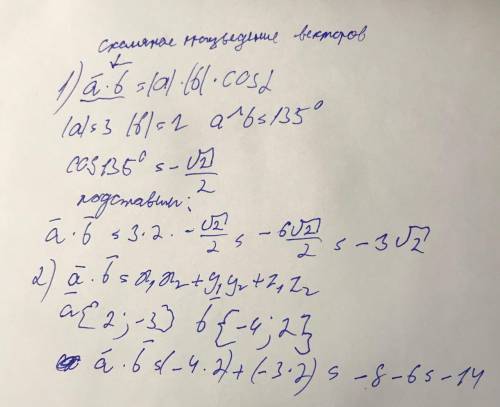 скалярное произведение векторов
1) a̅·b̅ = |a|·|b|·cosα
|a|=3 |b|=2 a^b=135°
cos135° = -√2/2
подставим:
a̅·b̅ = 3·2·-√2/2 = -6√2/2 = -3√2
2) a̅·b̅ = x₁x₂+y₁y₂+z₁z₂
a̅{2;-3} b̅{-4;2}
a̅·b̅=(-4·2)+(-3·2) = -8-6=-14